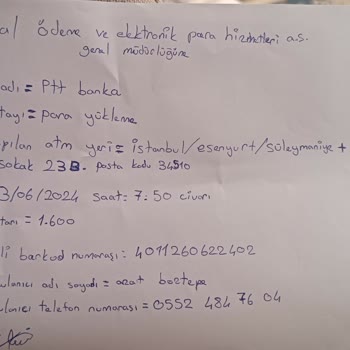 al ödeme ve elektronik para hizmetleri a.s.
genel müdürlüğüne
adı = Ptt banka
tayı = para yükleme
pılan atm yeri = istanbul/esenyurt/süleymaniye +
sokak 23B. posta kodu 34510
3/06/2024 saat: 7:50 civarı
tarı = 1.600
li barkod numarası: 4011260622402
ulanıcı adı soyadı = azat boztepe
ulanıcı telefon numarası = 0552 484 76 04